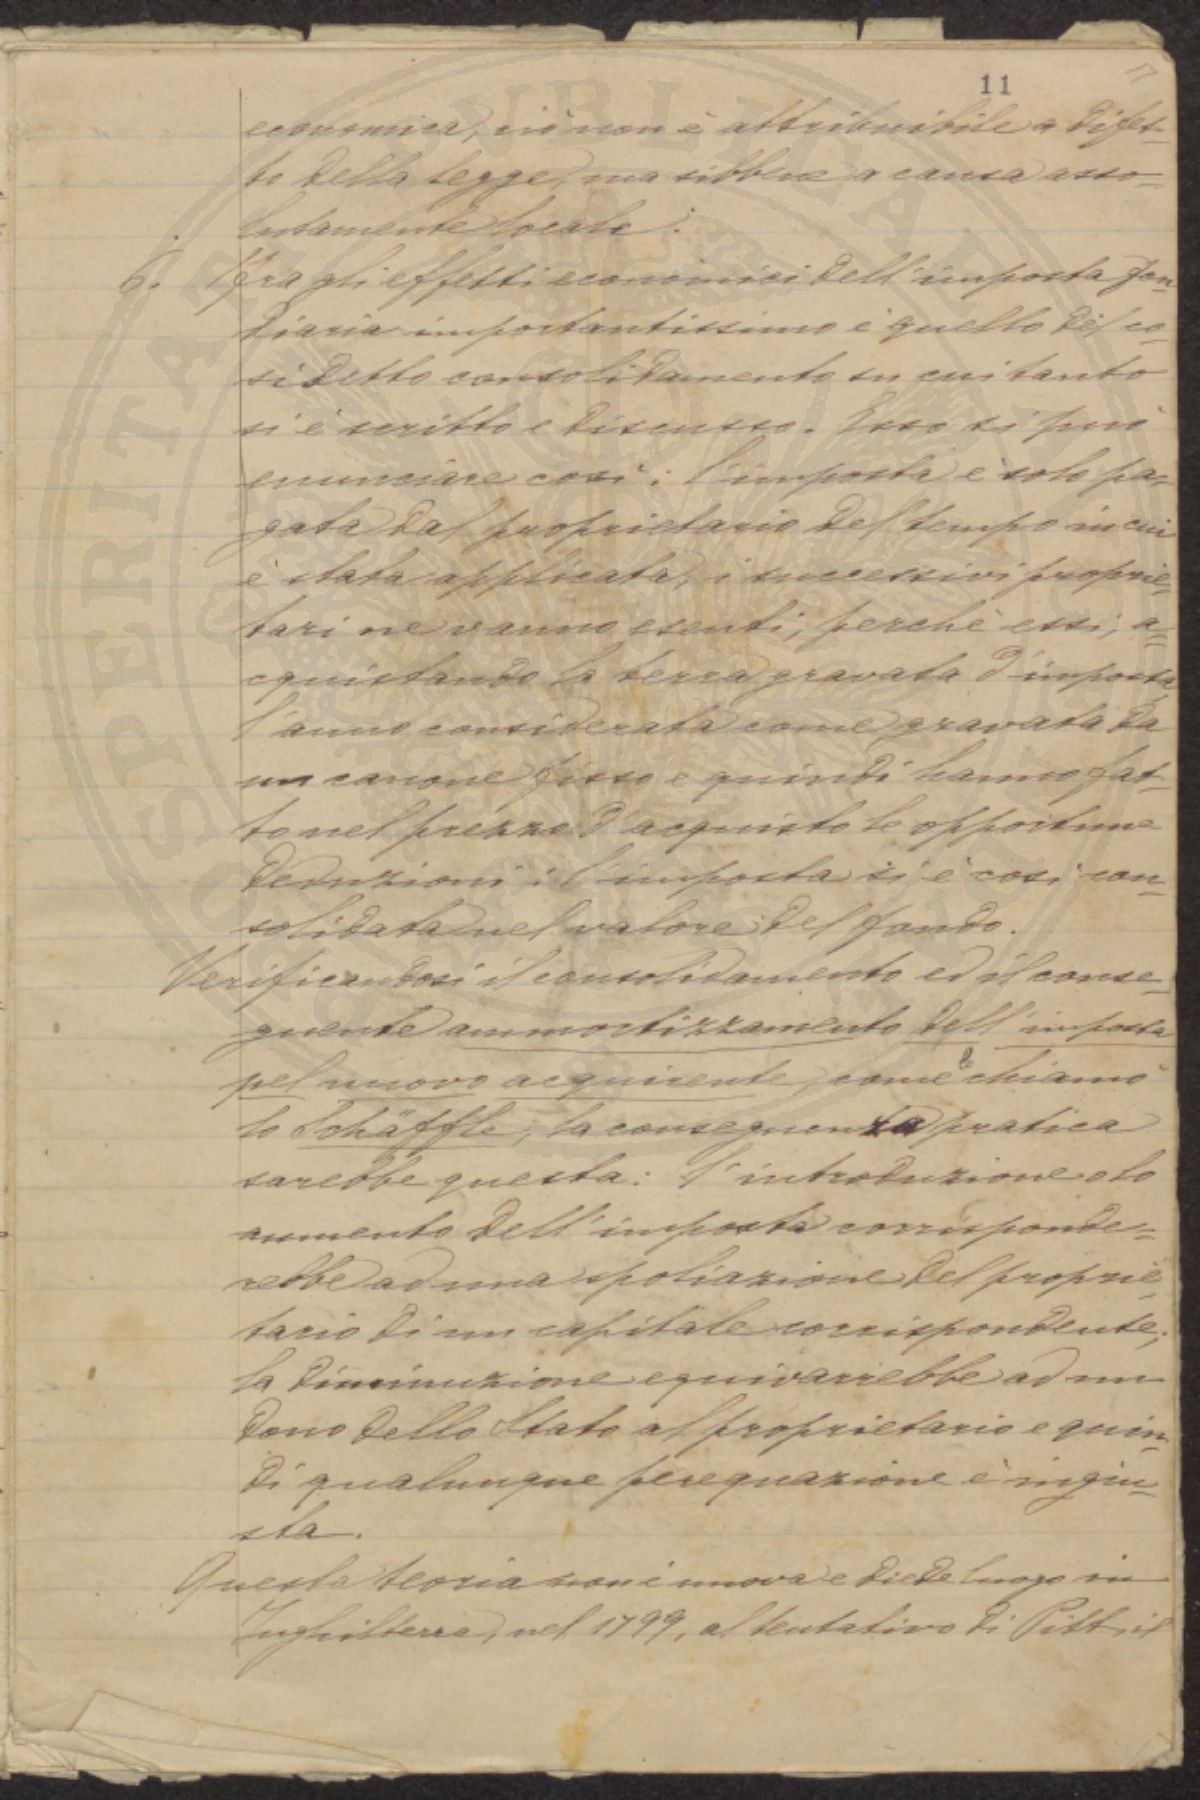 11
economica, ciò non è attribuibile a difet-
to della legge, ma sibbene a causa asso-
lutamente locale.
6. Fra gli effetti economici dell'imposta fon-
diaria importantissimo è quello del co-
sì detto consolidamento su cui tanto
si è scritto e discusso. Esso si può
enunciare così: l'imposta è solo pa-
gata dal proprietario del tempo in cui
è stata applicata, i successivi proprie-
tari ne vanno esenti, perchè essi, a-
cquistando la terra gravata d'imposta
l'anno considerata come gravata da
un canone fisso e quindi hanno fat-
to nel prezzo d'acquisto le opportune
deduzioni; l'imposta si è così con-
solidata nel valore del fondo.
Verificandosi il consolidamento ed il conse-
guente ammortizzamento dell'imposta
pel nuovo acquirente, come lo chiamò
lo Schäffle, la conseguenza pratica
sarebbe questa: l'introduzione o lo
aumento dell'imposta corrisponde-
rebbe ad una spoliazione del proprie-
tario di un capitale corrispondente;
la diminuzione equivarrebbe ad un
dono dello Stato al proprietario e quin-
di qualunque perequazione è ingiu-
sta.
Questa teoria non è nuova e diede luogo in
Inghilterra, nel 1799, al tentativo di Pitt, il
SPERITATI PUBLICAE